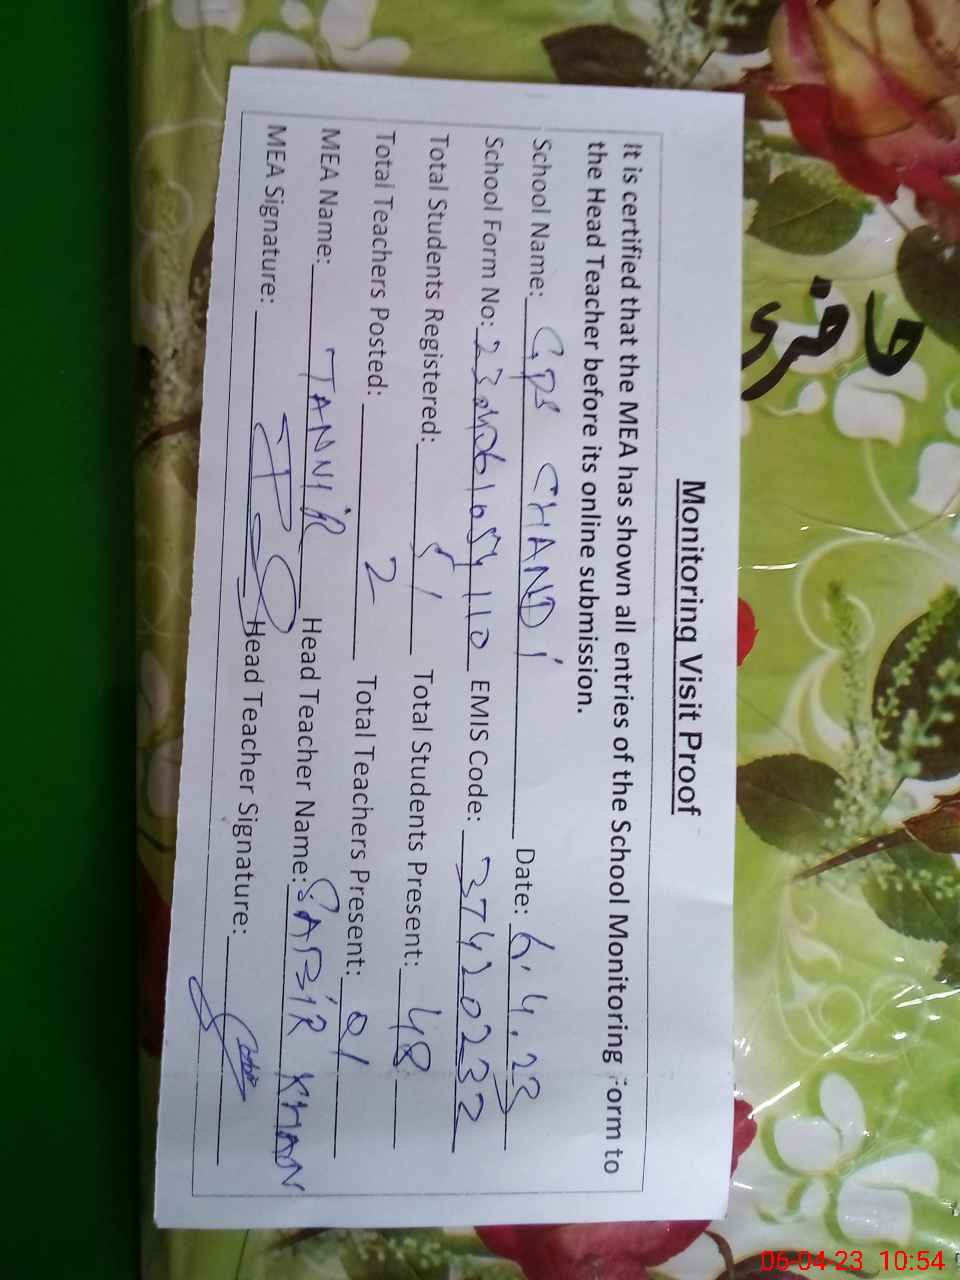 Monitoring Visit Proof
It is certified that the MEA has shown all entries of the School Monitoring Form to
the Head Teacher before its online submission.
School Name: GPS CHANDI Date: 6.4.23
School Form No: EMIS Code: 37420232
Total Students Registered: 51 Total Students Present: 48
Total Teachers Posted: 2 Total Teachers Present: 01
MEA Name: TANVIR Head Teacher Name: SABIR KHAN
MEA Signature: Head Teacher Signature:
06-04-23 10:54